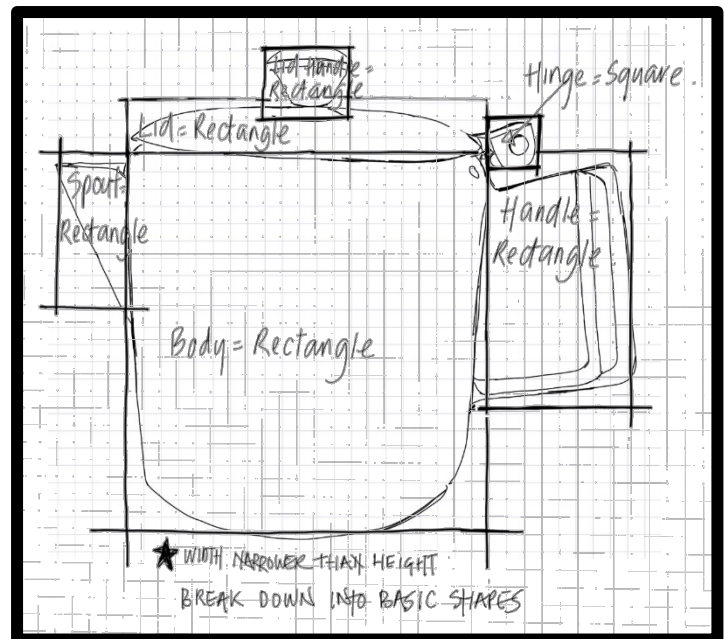 Lid Handle =
Rectangle
Hinge = Square.
Lid = Rectangle
Spout =
Rectangle
Handle =
Rectangle
Body = Rectangle
★ WIDTH NARROWER THAN HEIGHT
BREAK DOWN INTO BASIC SHAPES